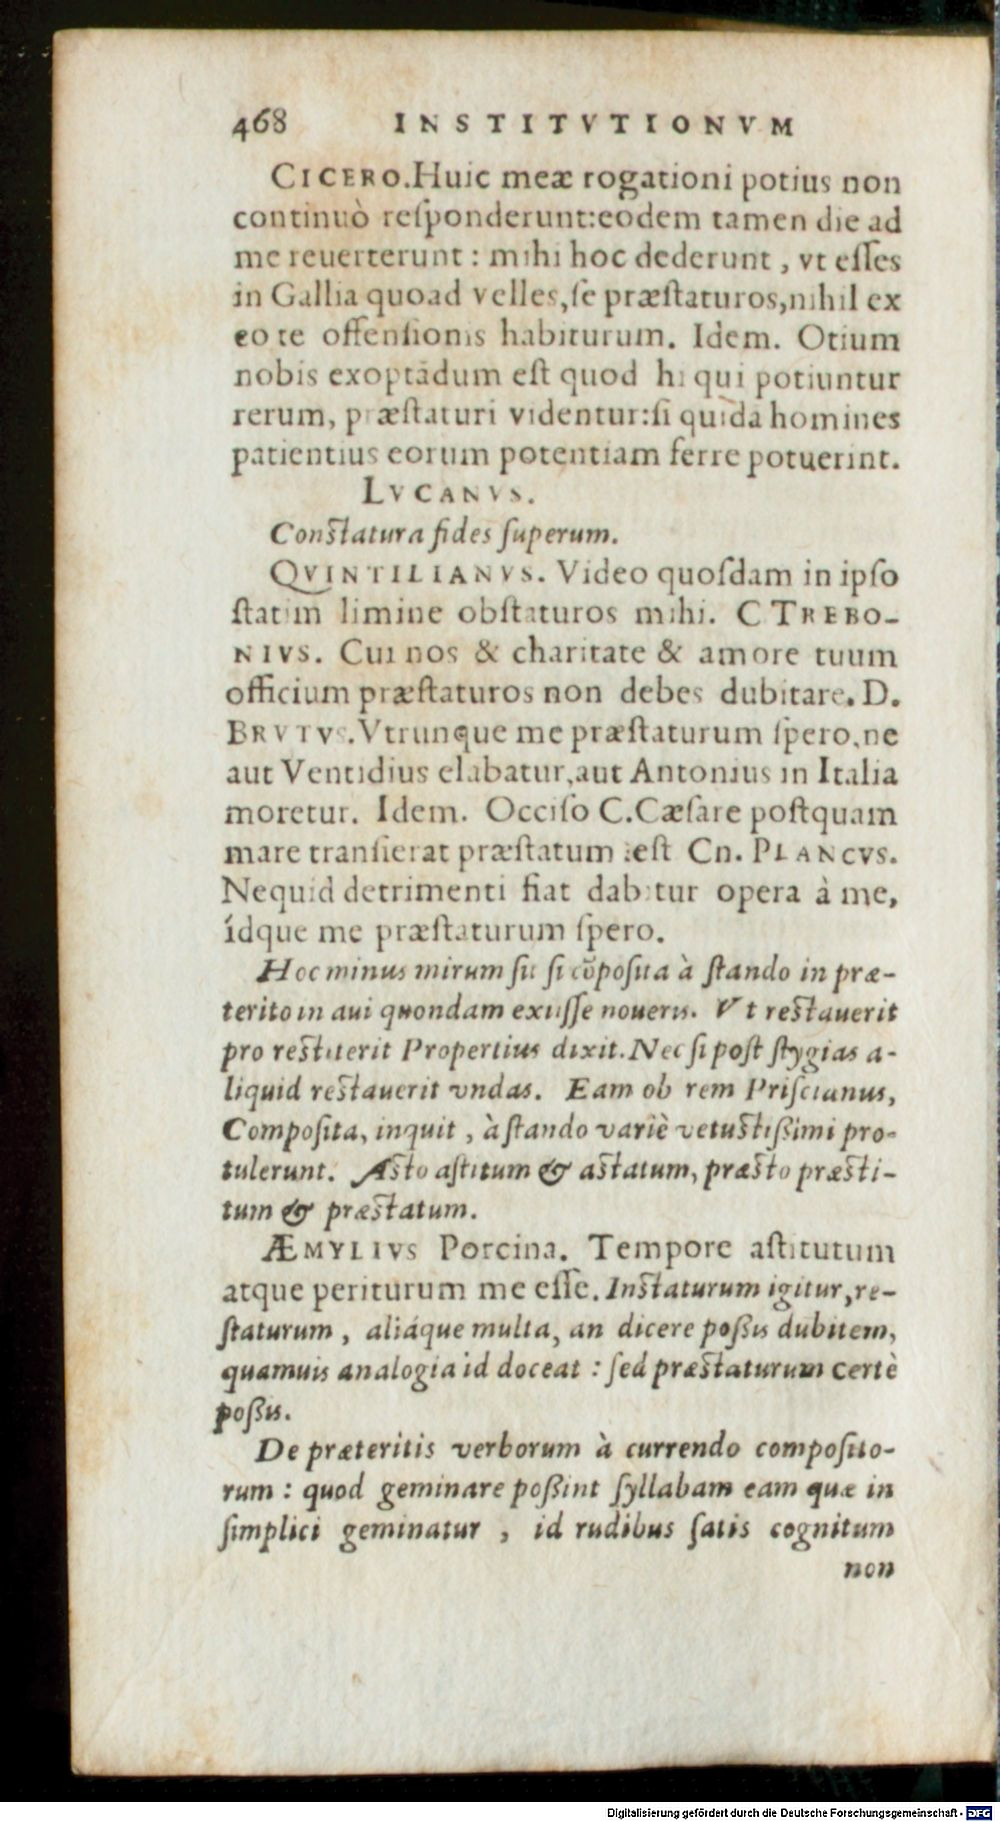 468 INSTITVTIONVM
CICERO.Huic meæ rogationi potius non
continuò reſponderunt:eodem tamen die ad
me reuerterunt : mihi hoc dederunt , vt eſſes
in Gallia quoad velles,ſe præſtaturos,nihil ex
eo te offenſionis habiturum. Idem. Otium
nobis exoptādum eſt quod hi qui potiuntur
rerum, præſtaturi videntur:ſi quidā homines
patientius eorum potentiam ferre potuerint.
LVCANVS.
Conſtatura fides ſuperum.
QVINTILIANVS. Video quoſdam in ipſo
ſtatim limine obſtaturos mihi. C TREBO-
NIVS. Cui nos & charitate & amore tuum
officium præſtaturos non debes dubitare. D.
BRVTVS.Vtrunque me præſtaturum ſpero,ne
aut Ventidius elabatur,aut Antonius in Italia
moretur. Idem. Occiſo C.Cæſare poſtquam
mare tranſierat præſtatum eſt Cn. PLANCVS.
Nequid detrimenti fiat dabitur opera à me,
ídque me præſtaturum ſpero.
Hoc minus mirum ſit ſi cōpoſita à ſtando in præ-
terito in aui quondam exiiſſe noueris. Vt reſtauerit
pro reſtiterit Propertius dixit.Nec ſi poſt ſtygias a-
liquid reſtauerit vndas. Eam ob rem Priſcianus,
Compoſita, inquit , à ſtando variè vetuſtißimi pro-
tulerunt. Aſto aſtitum & aſtatum, præſto præſti-
tum & præſtatum.
ÆMYLIVS Porcina. Tempore aſtitutum
atque periturum me eſſe. Inſtaturum igitur,re-
ſtaturum , aliáque multa, an dicere poßis dubitem,
quamuis analogia id doceat : ſed præſtaturum certè
poßis.
De præteritis verborum à currendo compoſito-
rum : quod geminare poßint ſyllabam eam quæ in
ſimplici geminatur , id rudibus ſatis cognitum
non
Digitalisierung gefördert durch die Deutsche Forschungsgemeinschaft - DFG